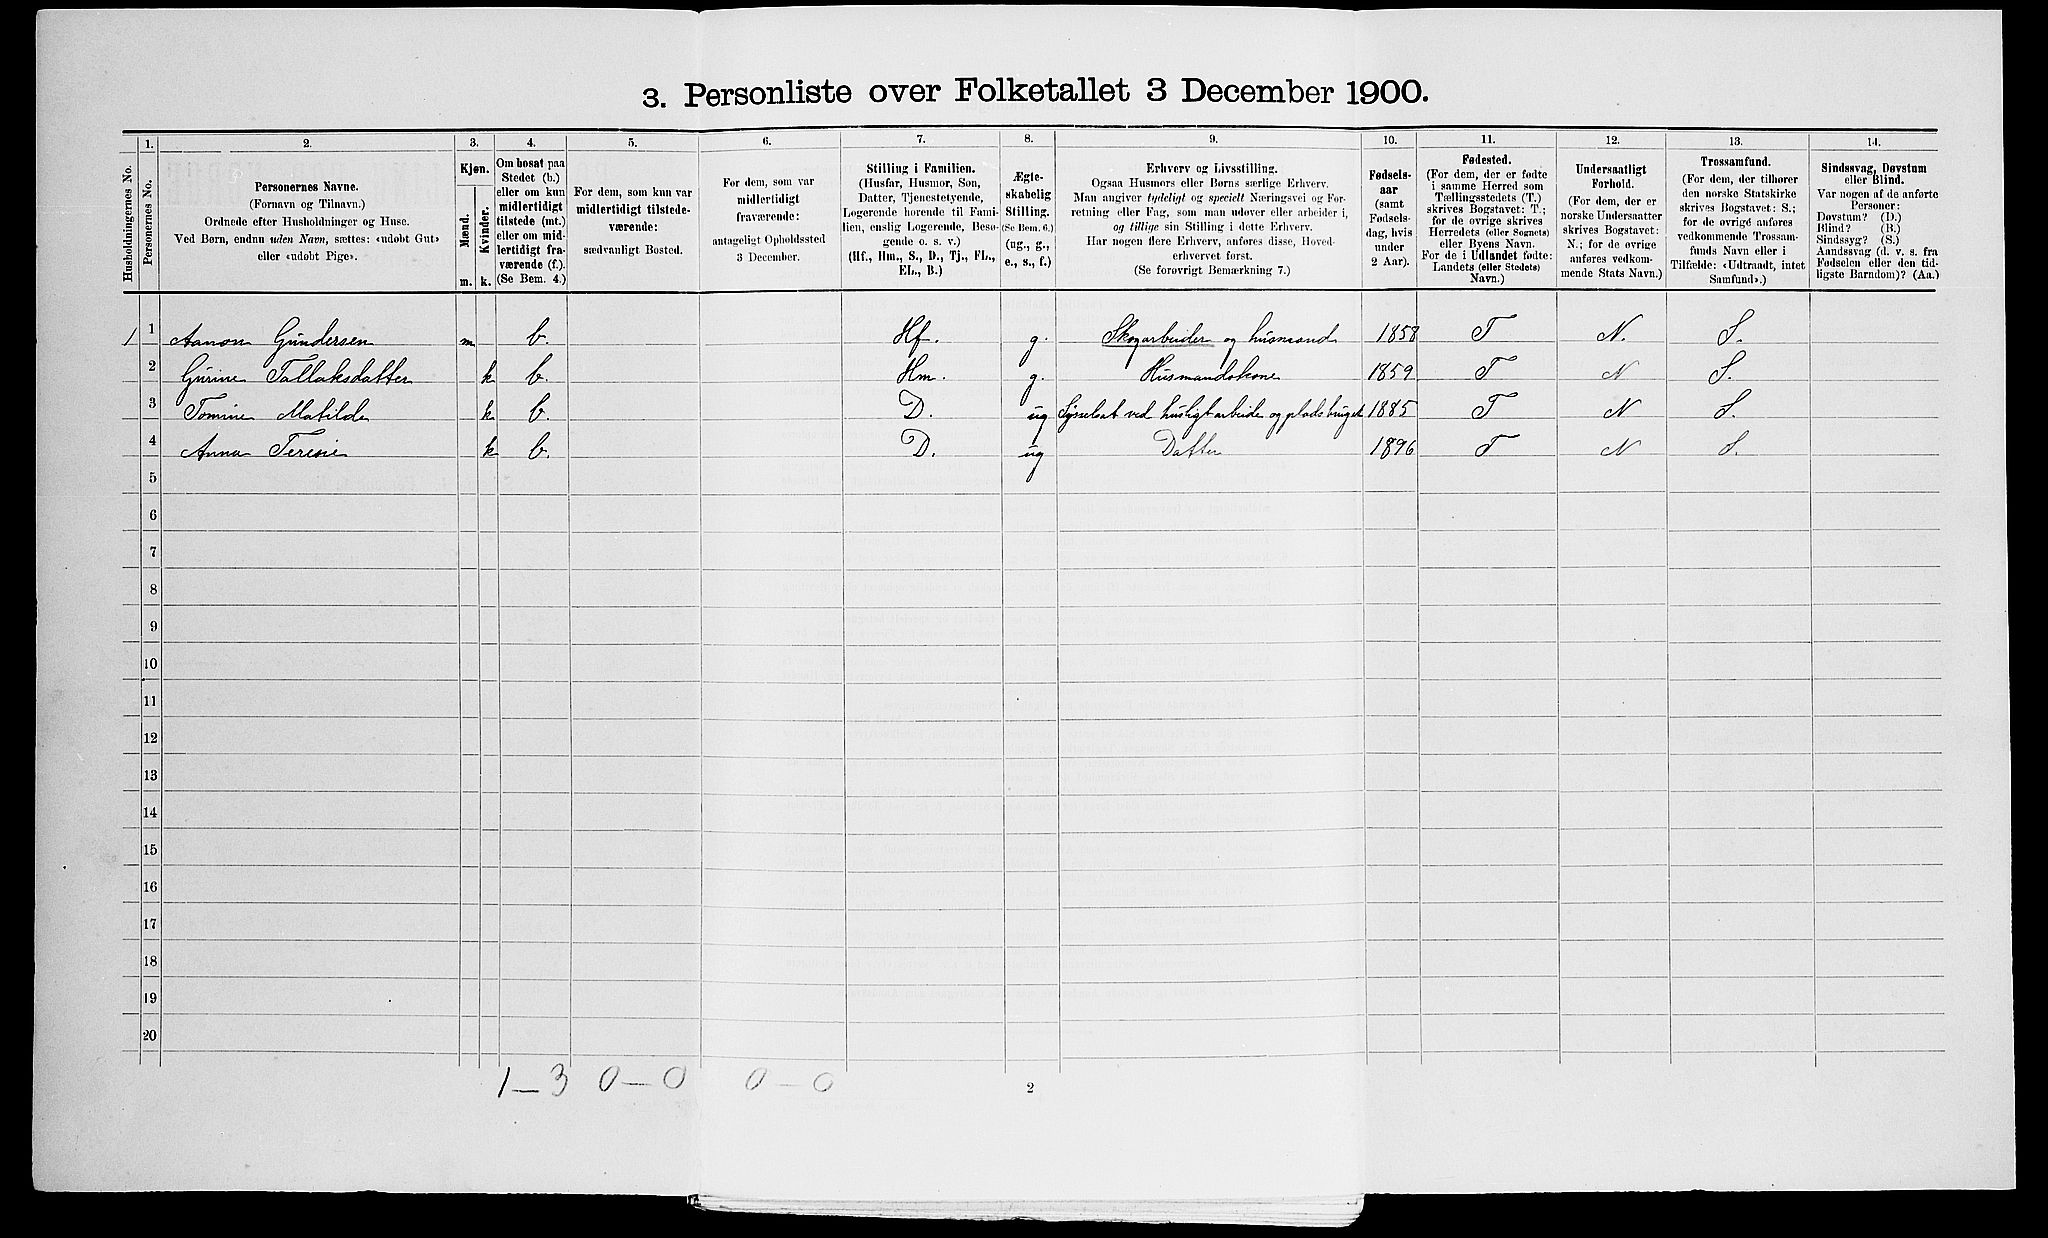 3. Personliste over Folketallet 3 December 1900.
Husholdningernes No.
1.
Personernes No.
2.
Personernes Navne.
(Fornavn og Tilnavn.)
Ordnede efter Husholdninger og Huse.
Ved Børn, endnu uden Navn, sættes: «udøbt Gut»
eller «udøbt Pige».
3.
Kjøn.
Mænd.
Kvinder.
m. k.
4.
Om bosat paa
Stedet (b.)
eller om kun
midlertidigt
tilstede (mt.)
eller om mid-
lertidigt fra-
værende (f.).
(Se Bem. 4.)
5.
For dem, som kun var
midlertidigt tilstede-
værende:
sædvanligt Bosted.
6.
For dem, som var
midlertidigt
fraværende:
antageligt Opholdssted
3 December.
7.
Stilling i Familien.
(Husfar, Husmor, Søn,
Datter, Tjenestetyende,
Logerende hørende til Fami-
lien, enslig Logerende, Besø-
gende o. s. v.)
(Hf., Hm., S., D., Tj., FL.,
EL., B.)
8.
Ægte-
skabelig
Stilling.
(Se Bem. 6.)
(ug., g.,
e., s., f.)
9.
Erhverv og Livsstilling.
Ogsaa Husmors eller Børns særlige Erhverv.
Man angiver tydeligt og specielt Næringsvei og For-
retning eller Fag, som man udøver eller arbeider i,
og tillige sin Stilling i dette Erhverv.
Har nogen flere Erhverv, anføres disse, Hoved-
erhvervet først.
(Se forøvrigt Bemærkning 7.)
10.
Fødsels-
aar
(samt
Fødsels-
dag, hvis
under
2 Aar).
11.
Fødested.
(For dem, der er fødte
i samme Herred som
Tællingsstedets (T.)
skrives Bogstavet: T.;
for de øvrige skrives
Herredets (eller Sognets)
eller Byens Navn.
For de i Udlandet fødte:
Landets (eller Stedets)
Navn.)
12.
Undersaatligt
Forhold.
(For dem, der er
norske Undersaatter
skrives Bogstavet:
N.; for de øvrige
anføres vedkom-
mende Stats Navn.)
13.
Trossamfund.
(For dem, der tilhører
den norske Statskirke
skrives Bogstavet: S.;
for de øvrige anføres
vedkommende Trossam-
funds Navn eller i
Tilfælde: «Udtraadt, intet
Samfund».)
14.
Sindssvag, Døvstum
eller Blind.
Var nogen af de anførte
Personer:
Døvstum? (D.)
Blind? (B.)
Sindssyg? (S.)
Aandssvag (d. v. s. fra
Fødselen eller den tid-
ligste Barndom)? (Aa.)
1 1 Aanon Gundersen m b. Hf. g. Skogarbeider og husmand 1858 T N. S.
2 Gurine Tallaksdatter k b. Hm. g. Husmandskone 1859 T N S.
3 Tomine Matilde k b. D. ug Sysselsat ved husligt arbeide og pladsbruget 1885 T N S.
4 Anna Teresie k b. D. ug Datter 1896 T N S.
5
6
7
8
9
10
11
12
13
14
15
16
17
18
19
20
1–3 0–0 0–0
2